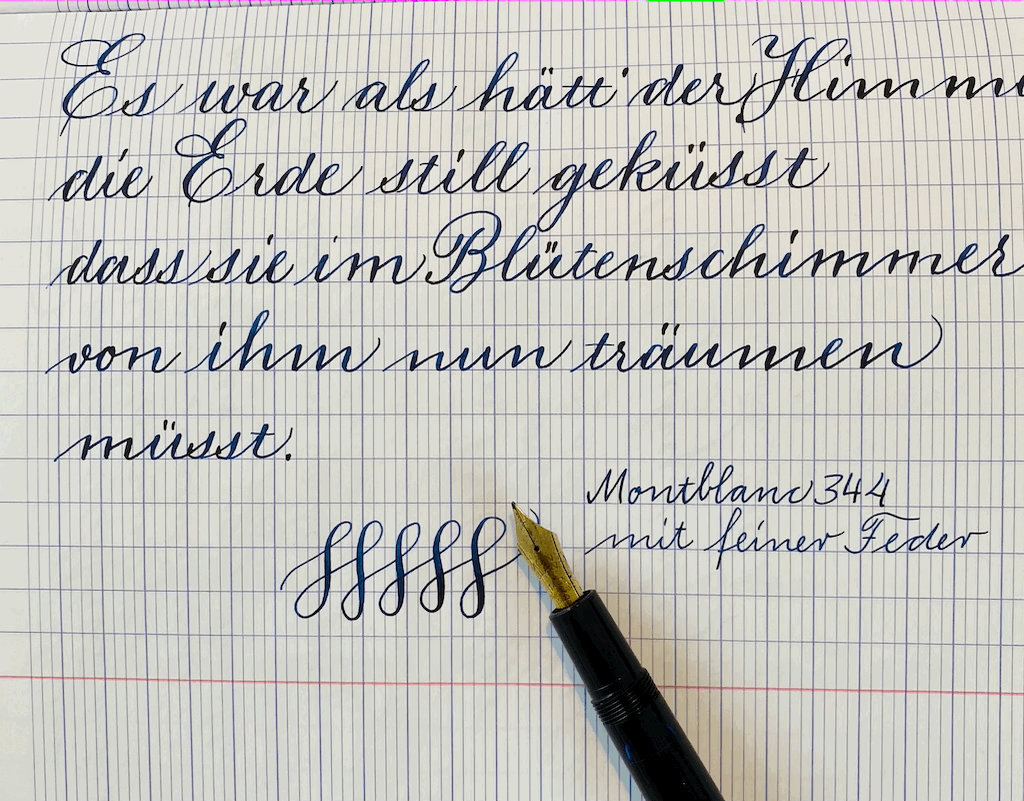 Es war als hätt' der Himme
die Erde still geküsst
dass sie im Blütenschimmer
von ihm nun träumen
müsst.
Montblanc 344
mit feiner Feder